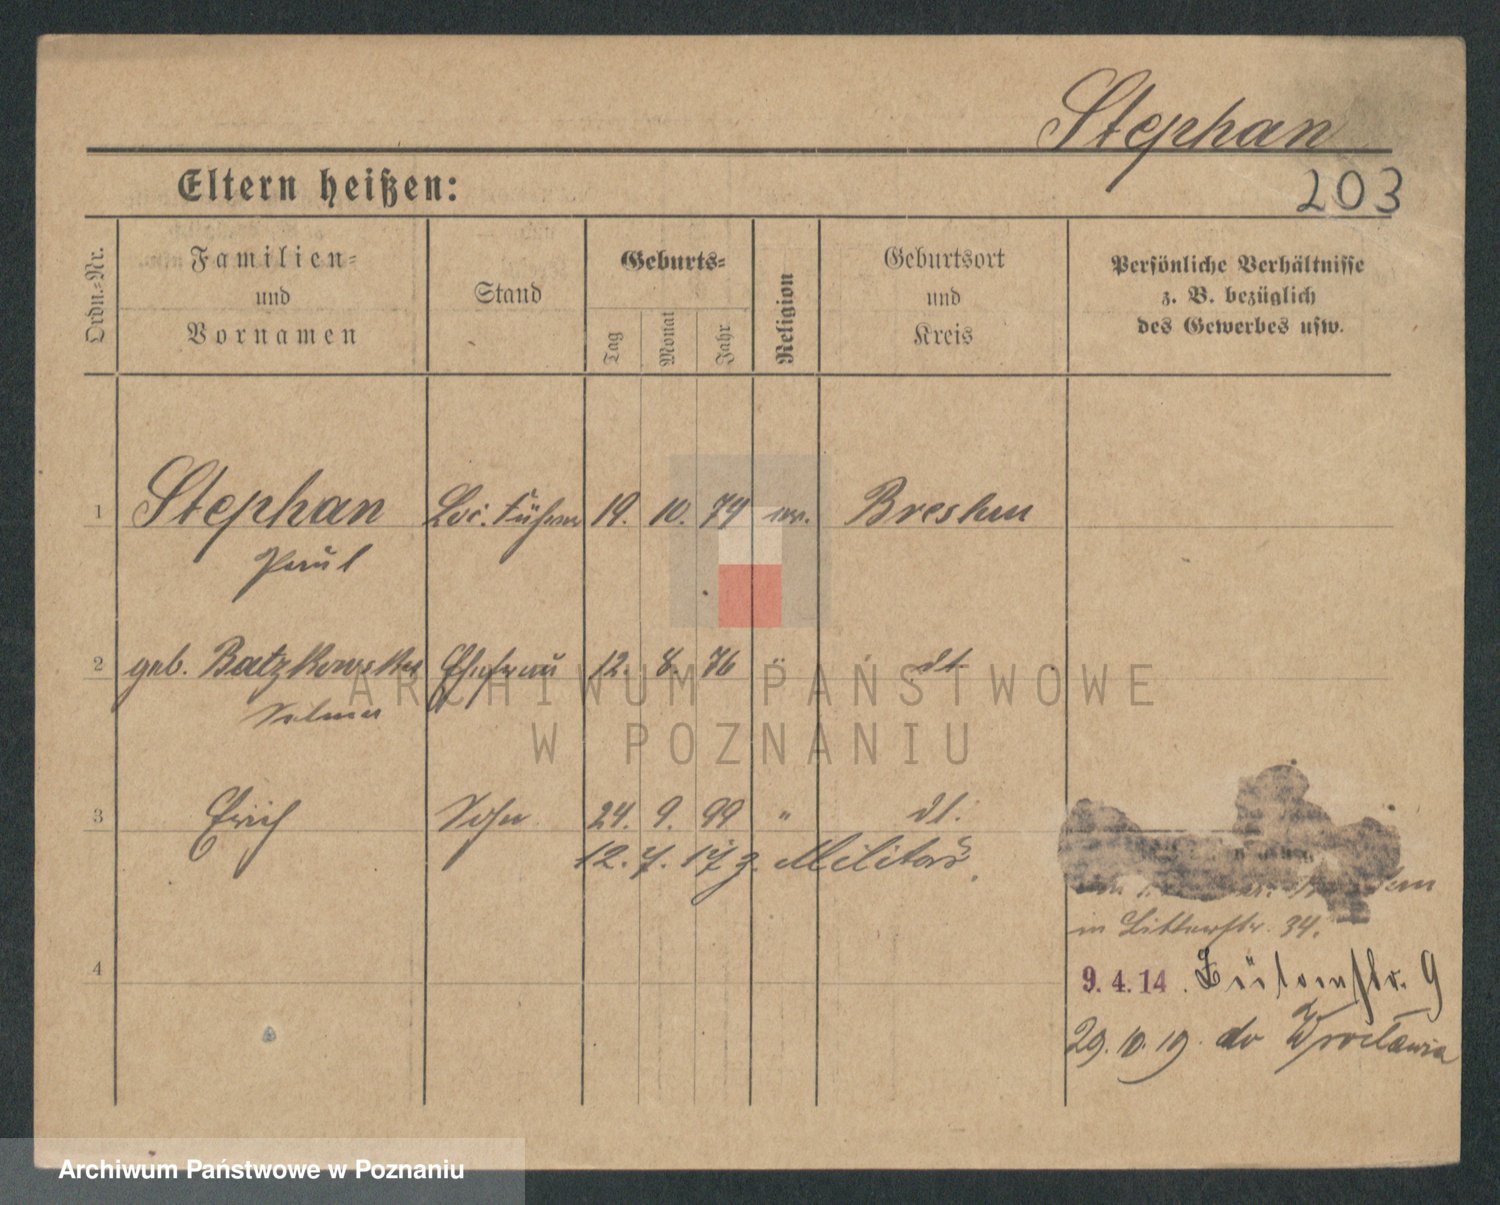 Stephan
203
Eltern heißen:
Ordn.-Nr.
Familien-
und
Vornamen
Stand
Geburts-
Tag
Monat
Jahr
Religion
Geburtsort
und
Kreis
Persönliche Verhältnisse
z. B. bezüglich
des Gewerbes usw.
1 Stephan Loc. Führer 19. 10. 74 Breslau
Paul
2 geb. Batzkowska Ehefrau 12. 8. 76 " dt.
Selma
3 Erich Sohn 24. 9. 99 " dt.
12. 7. 17 z. Militär.
in 34.
4
9.4.14. 9
29.10.19. do Wrocławia
ARCHIWUM PAŃSTWOWE
W POZNANIU
Archiwum Państwowe w Poznaniu